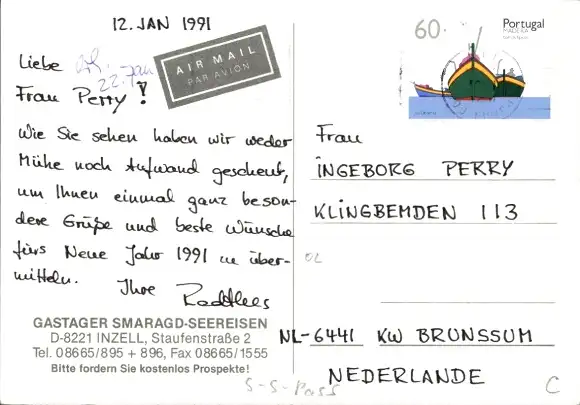 12. JAN 1991
Liebe
22. Jan
Frau Perry!
AIR MAIL
PAR AVION
Wie Sie sehen haben wir weder
Mühe noch Aufwand gescheut,
um Ihnen einmal ganz beson-
dere Grüße und beste Wünsche
fürs Neue Jahr 1991 zu über-
mitteln.
Ihre
GASTAGER SMARAGD-SEEREISEN
D-8221 INZELL, Staufenstraße 2
Tel. 08665/895 + 896, Fax 08665/1555
Bitte fordern Sie kostenlos Prospekte!
S-S-Pass
60.
Portugal
MADEIRA
Frau
INGEBORG PERRY
KLINGBEMDEN 113
OL
NL-6441 KW BRUNSSUM
NEDERLANDE
C